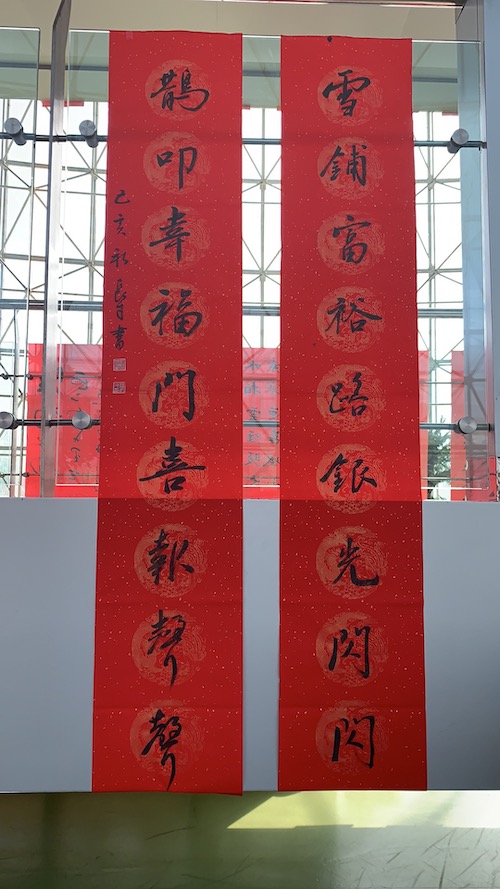 雪鋪富裕路銀先閃閃
鵲叩幸福門喜報聲聲
己亥 書